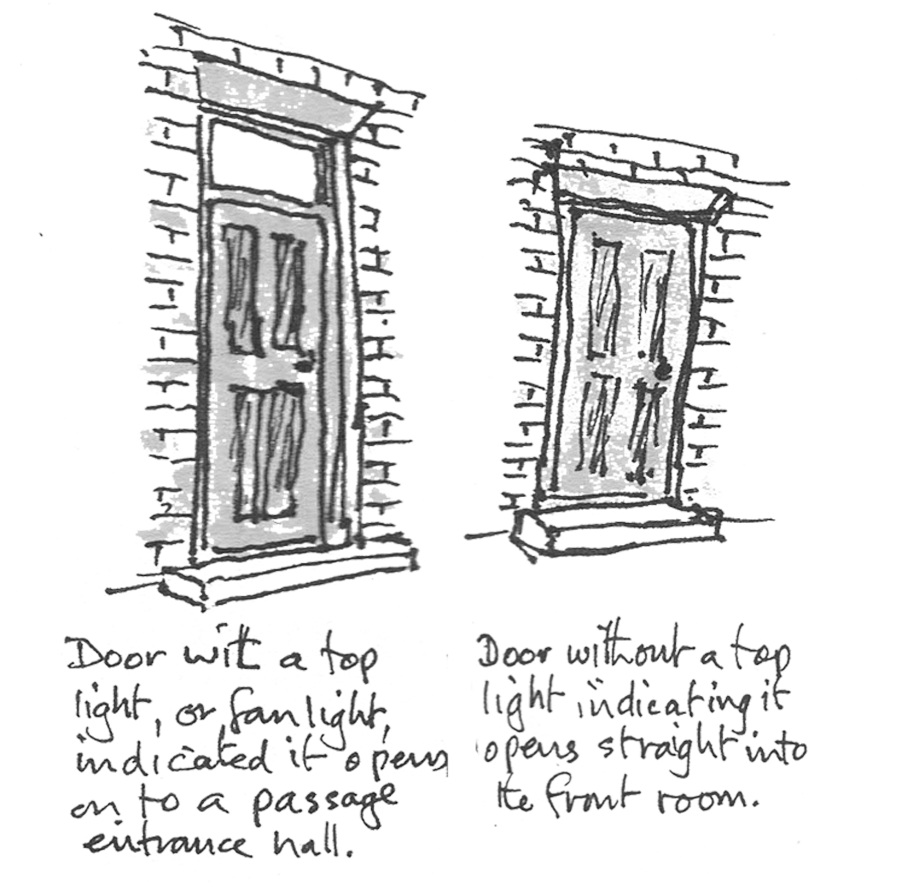 Door with a top
light, or fanlight,
indicated it opens
on to a passage
entrance hall.
Door without a top
light indicating it
opens straight into
the front room.